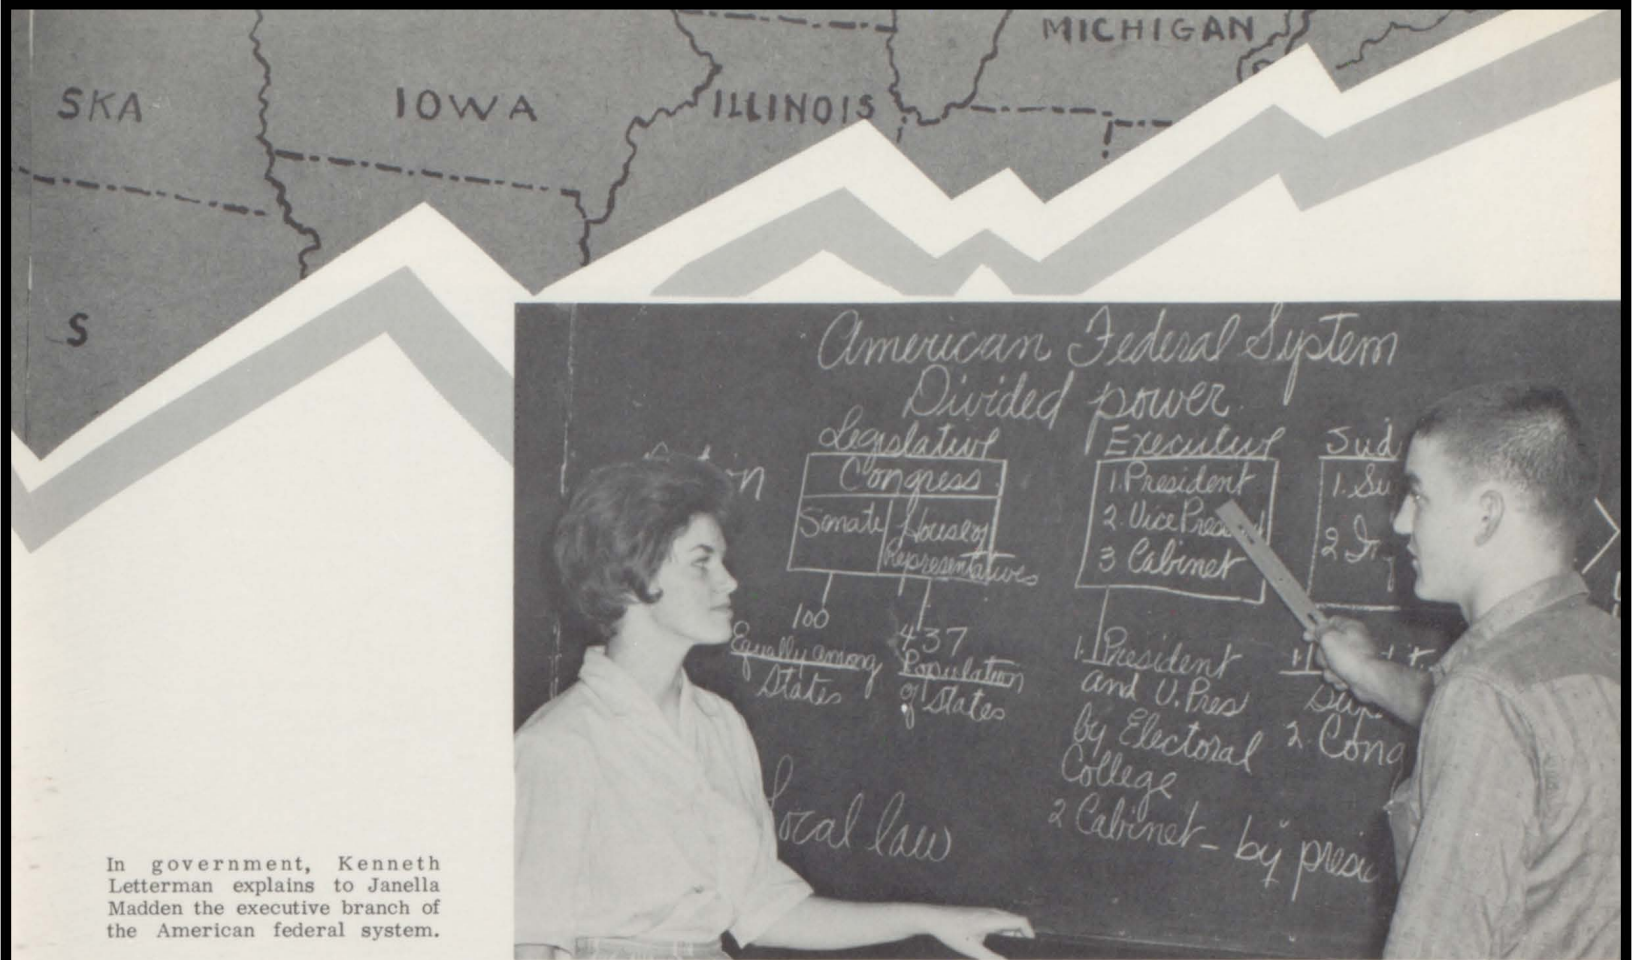 MICHIGAN
SKA
IOWA
ILLINOIS
S
American Federal System
Divided power
Legislative
Congress
Senate
House of
Representatives
100
Equally among
States
437
Population
of States
Executive
1. President
2. Vice President
3 Cabinet
1. President
and V. Pres
by Electoral
College
2 Cabinet - by presi
Jud
1. Su
2
1.
2. Cong
local law
In government, Kenneth
Letterman explains to Janella
Madden the executive branch of
the American federal system.